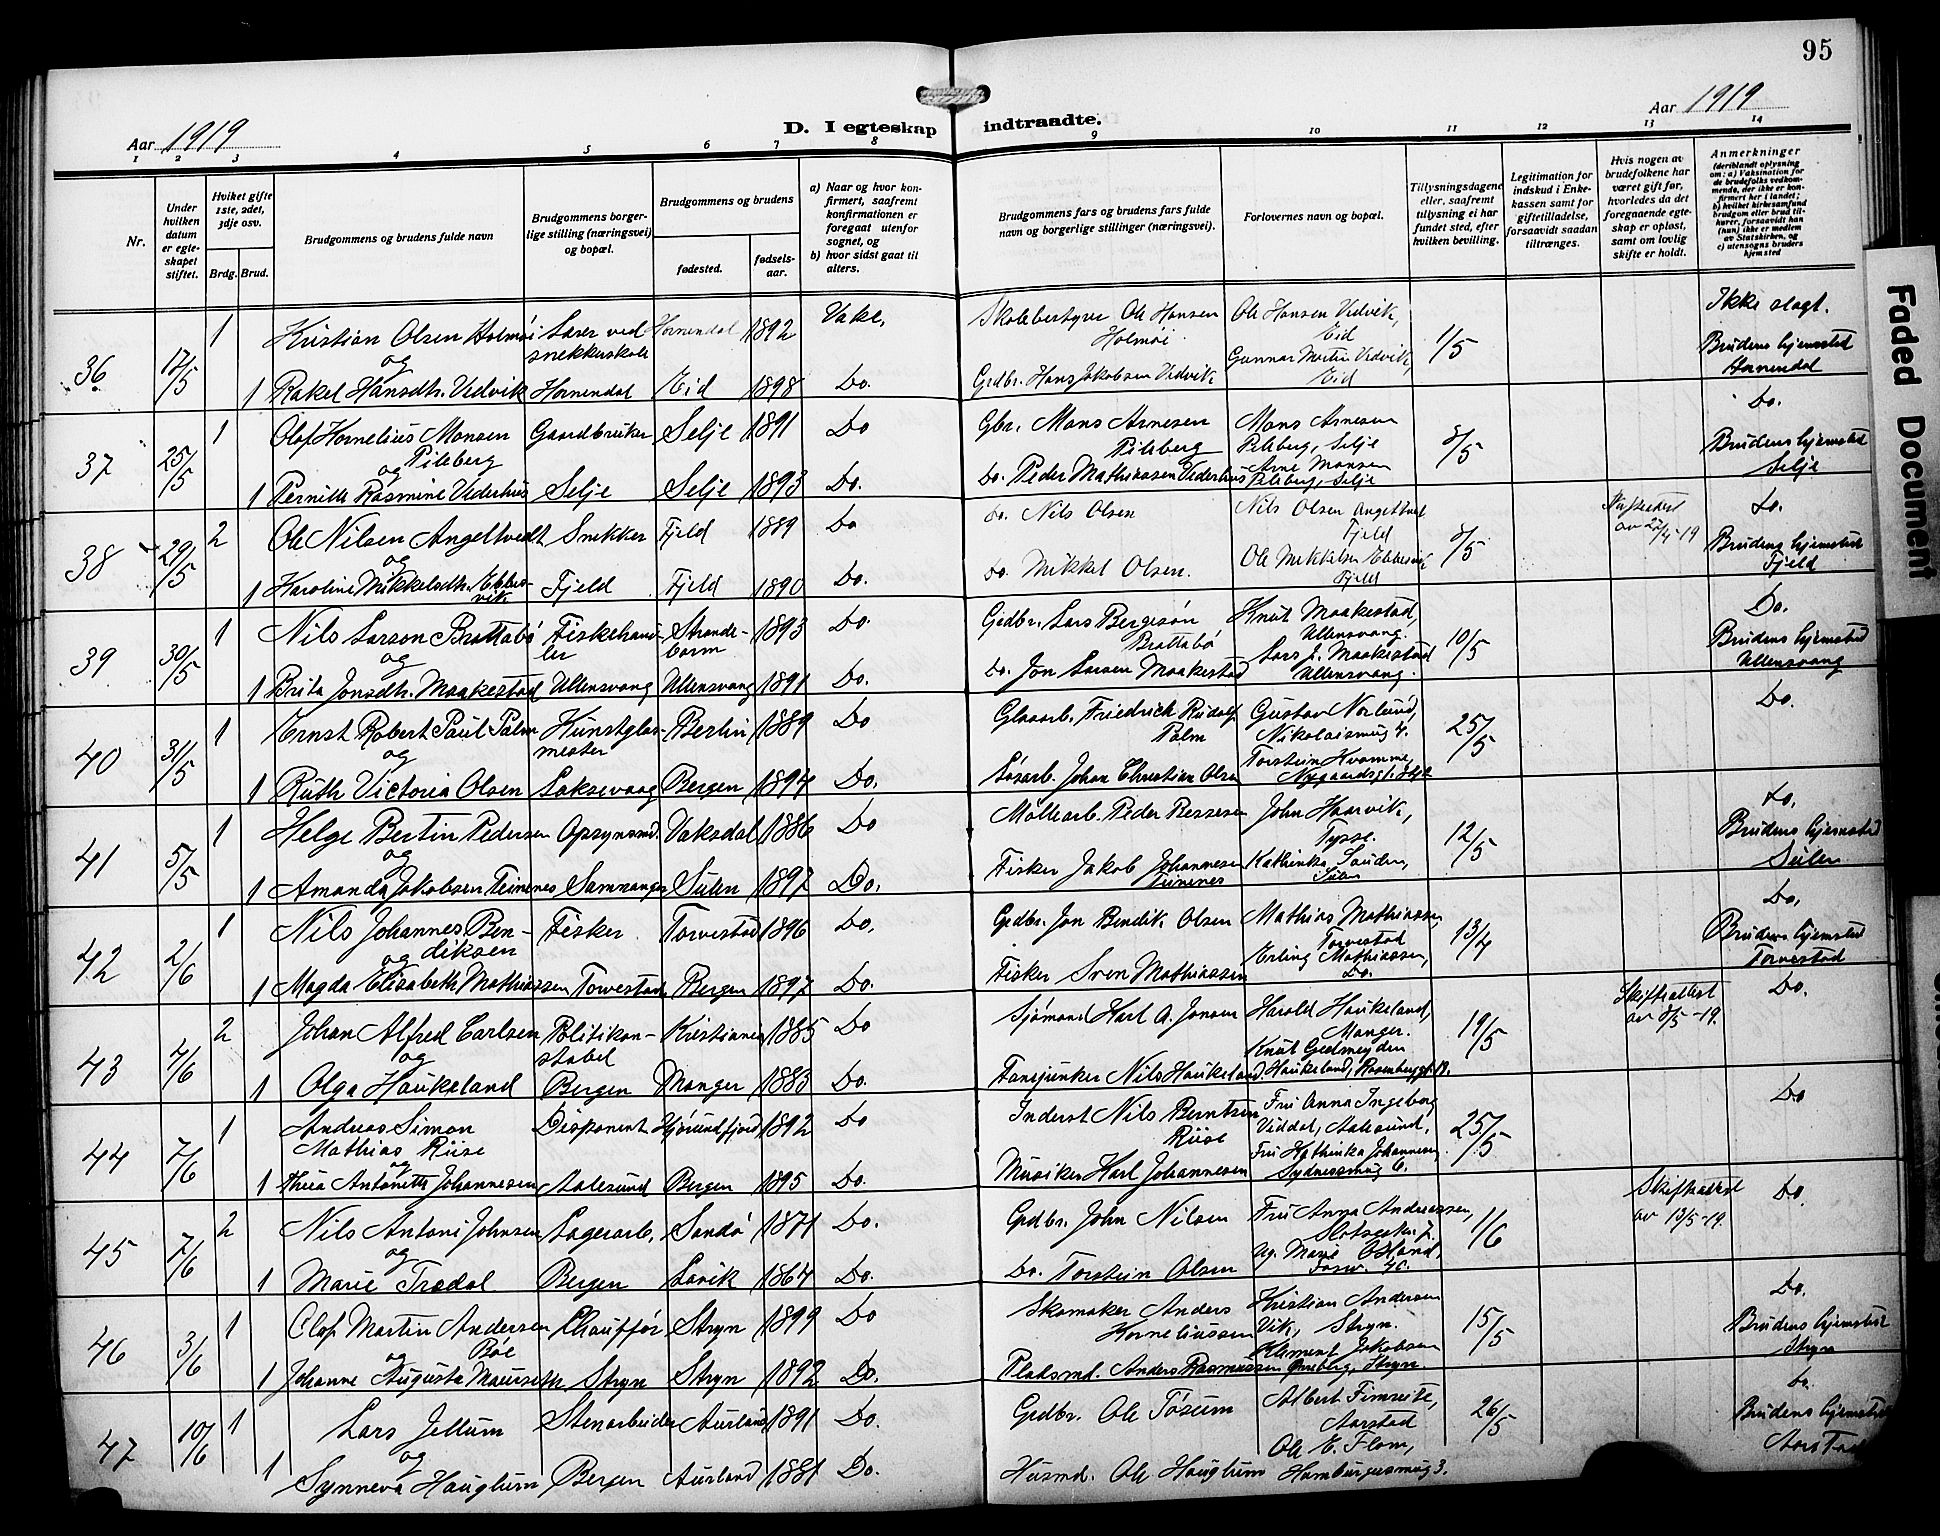 95
Aar 1919
D. I egteskap indtraadte.
Aar 1919
1 2 3 4 5 6 7 8 9 10 11 12 13 14
Nr.
Under hvilken datum er egteskapet stiftet.
Hvilket gifte 1ste, 2det, 3dje osv.
Brdg. Brud.
Brudgommens og brudens fulde navn
Brudgommens borgerlige stilling (næringsvei) og bopæl.
Brudgommens og brudens
fødested.
fødselsaar.
a) Naar og hvor konfirmert, saafremt konfirmationen er foregaat utenfor sognet, og
b) hvor sidst gaat til alters.
Brudgommens fars og brudens fars fulde navn og borgerlige stillinger (næringsvei).
Forlovernes navn og bopæl.
Tillysningsdagene eller, saafremt tillysning ei har fundet sted, efter hvilken bevilling.
Legitimation for indskud i Enkekassen samt for giftetilladelse, forsaavidt saadan tiltrænges.
Hvis nogen av brudefolkene har været gift før, hvorledes da det foregaaende egteskap er opløst, samt om lovlig skifte er holdt.
Anmerkninger
(deriblandt oplysning om: a) Vaksination for de brudefolks vedkommende, der ikke er konfirmert her i landet; b) hvilket kirkesamfund brudgom eller brud tilhører, forsaavidt han (hun) ikke er medlem av Statskirken, og c) utensogns bruders hjemsted
36 12/5 1 Kristian Olsen Holmøi Lærer ved snekkerskole Hornendal 1892 Vake. Skolebestyrer Ole Hansen Holmøi Ole Hansen Vedvik, Eid 1/5 Ikke slegt.
og Gunnar Martin Vedvik, Eid Brudens hjemsted
1 Rakel Hansdtr. Vedvik Hornendal Eid 1898 Do. Grdbr. Hans Jakobsen Vedvik Hornendal
37 25/5 1 Olaf Kornelius Monsen Pileberg Gaardbruker Selje 1891 Do Gbr. Mons Arnesen Pileberg Mons Arnesen Pileberg, Selje 8/5 Do.
og Arne Monsen Pileberg, Selje Brudens hjemsted
1 Pernille Rasmine Vederhus Selje Selje 1893 Do. Do. Peder Mathiassen Vederhus Selje
38 29/5 2 Ole Nilsen Angeltvedt Snekker Fjeld 1889 Do do. Nils Olsen Nils Olsen Angeltvedt Fjeld 8/5 Skifteattest av 22/4-19 Do.
og Ole Mikkelsen Ebbesvik Fjeld Brudens hjemsted
1 Karoline Mikkelsdtr. Ebbesvik Fjeld Fjeld 1890 Do. Do. Mikkel Olsen. Fjeld
39 30/5 1 Nils Larsen Brattabø Fiskehandler Strandebarm 1893 Do. Grdbr. Lars Bergesøn Brattabø Knut Maakestad, Ullensvang. 10/5 Do.
og Lars J. Maakestad Ullensvang. Brudens hjemsted
1 Brita Jonsdtr. Maakestad Ullensvang Ullensvang 1891 Do. Do. Jon Larsen Maakestad Ullensvang
40 31/5 1 Ernst Robert Paul Palm Kunstglasmester Berlin 1889 Do Glasarb. Friedrich Rudolf Palm Gustav Norlund, Nikolaismug 4. 25/5 Do.
og Torstein Kvamme,
1 Ruth Victoria Olsen Laksevaag Bergen 1894 Do. Løsarb. Johan Christian Olsen Nygaardsgt.
41 5/5 1 Helge Bertin Pedersen Opsynsmd. Vaksdal 1886 Do Møllearb. Peder Pedersen John Haarvik, Tysse. 12/5 Do.
og Kathinka Sanden, Sulen Brudens hjemsted
1 Amanda Jakobsen Teinenes Samnanger Sulen 1897 Do. Fisker Jakob Johannesen Teinenes Sulen
42 2/6 1 Nils Johannes Bendiksen Fisker Torvestad 1896 Do. Grdbr. Jon Bendik Olsen Mathias Mathiassen, Torvestad 13/4 Do.
og Erling Mathiassen, Do. Brudens hjemsted
1 Magda Elisabeth Mathiassen Torvestad Bergen 1897 Do. Fisker Sven Mathiassen Torvestad
43 4/6 2 Johan Alfred Carlsen Politikonstabel Kristiania 1885 Do Sjømand Karl A. Jonsen Harald Haukeland, Manger. 19/5 Skifteattest av 8/5-19. Do.
og Knut Gedmeyden
1 Olga Haukeland Bergen Manger 1883 Do. Fanejunker Nils Haukeland. Haukeland, Rosenberggt.
44 7/6 1 Andreas Simon Mathias Riise Disponent Hjørundfjord 1892 Do Inderst Nils Berntsen Riise Fru Anna Ingeborg Viddal, Aalesund, 25/5 Do
og Fru Kathinka Johannesen,
1 Thea Antonette Johannesen Aalesund Bergen 1895 Do. Musiker Karl Johannesen Sydnessmug 6.
45 7/6 2 Nils Antoni Johnsen Lagerarb. Sandø 1871 Do. Grdbr. John Nilsen Fru Anna Andreassen, 1/6 Skifteattest av 13/5-19. Do.
og Ug. Marie Østland,
1 Marie Tredal Bergen Lavik 1864 Do. Do. Torstein Olsen
46 3/6 1 Olaf Martin Andersen Bøe Chauffør Stryn 1899 Do Skomaker Anders Korneliussen Kristian Andersen Vik, Stryn. 15/5 Do.
og Klement Jakobsen Brudens hjemsted
1 Johanne Augusta Mauseth Stryn Stryn 1892 Do. Pladsmd. Anders Rasmussen Stryn Stryn
47 10/6 1 Lars Jellum Stenarbeider Aurland 1891 Do. Grdbr. Ole Tøsum Albert Fimreite, Aarstad 26/5 Do.
og Ole E. Flom, Brudens hjemsted
1 Synneva Hauglum Bergen Aurland 1881 Do. Husmd. Ole Hauglum Hamburgsmug 3. Aarstad
Faded Document